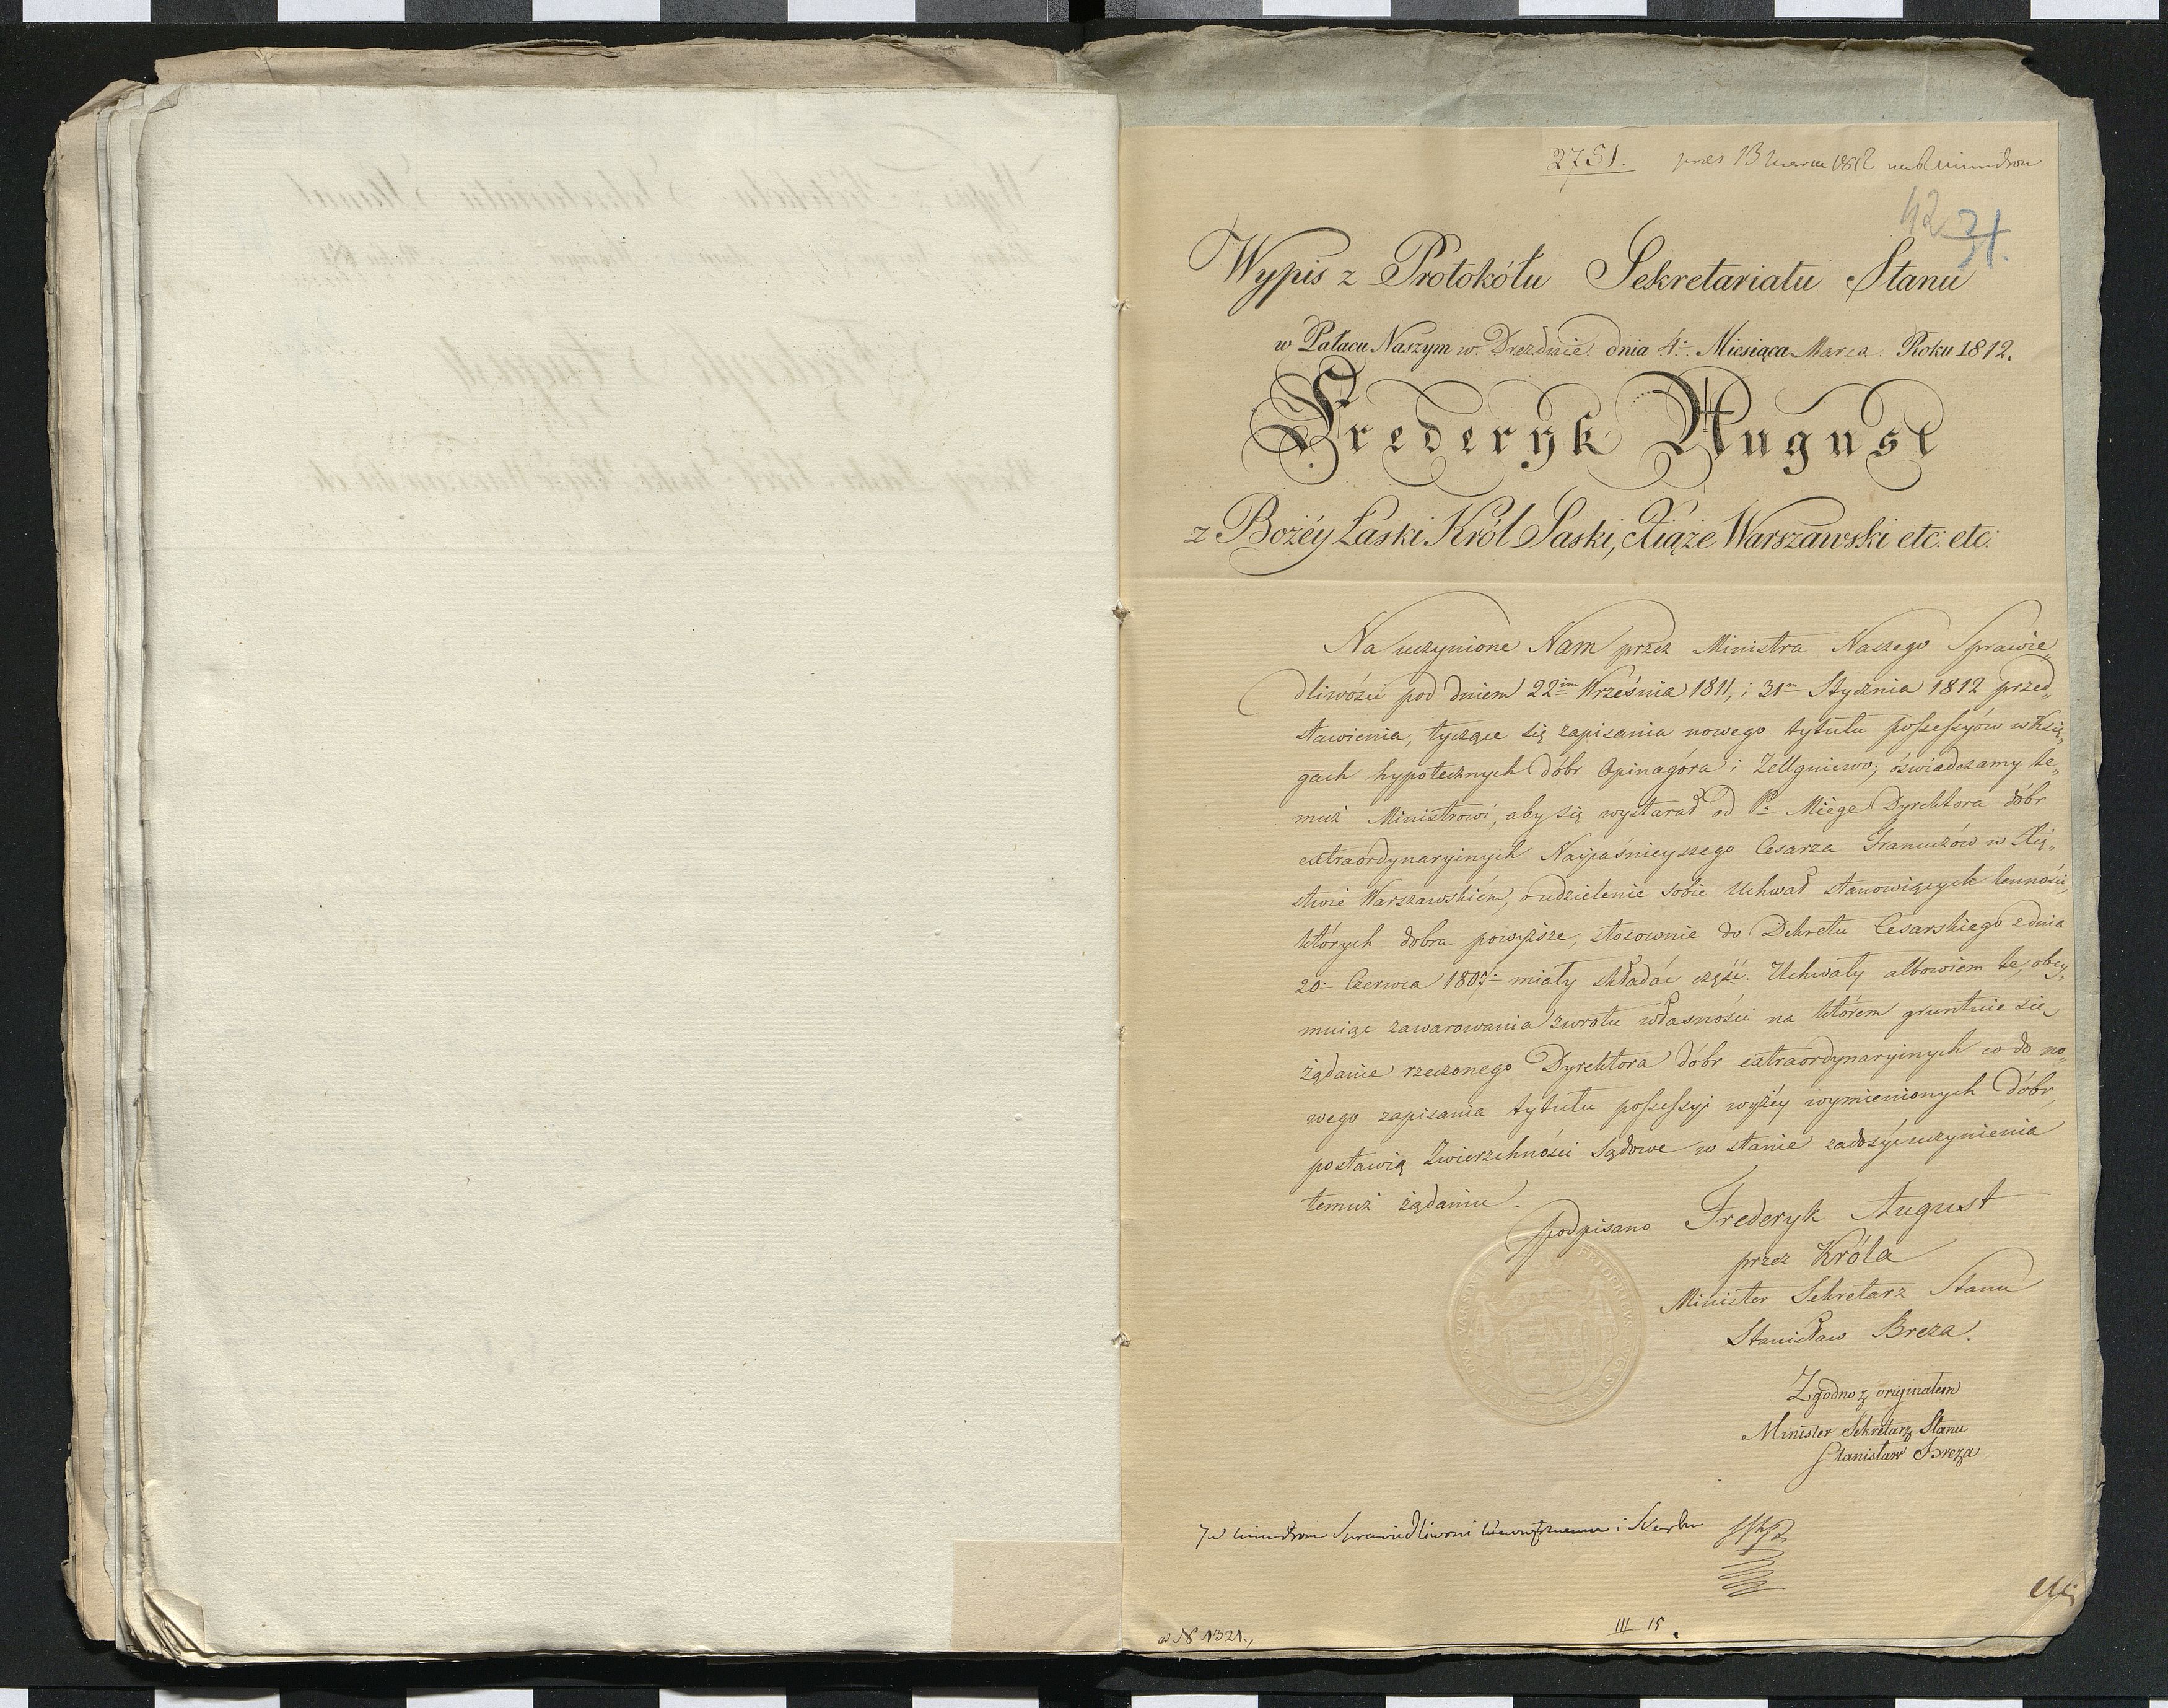 2751. 13 Marca 1812
42 31.
Wypis z Protokółu Sekretariatu Stanu
w Pałacu Naszym w Dreźnie dnia 4. Miesiąca Marca. Roku 1812.
Frederyk August
z Bożéy Łaski Król Saski, Xiąże Warszawski etc: etc:
Na uczynione Nam przez Ministra Naszego Sprawie„
dliwości pod dniem 22im Września 1811, i 31m Stycznia 1812 przed„
stawienia, tyczące się zapisania nowego tytułu possessyów w Księ„
gach hypotecznych dóbr Opinagóra i Zellgniewo, oświadczamy te„
muż Ministrowi, aby się wystarał od Pa Miége Dyrektora dóbr
extraordynaryinych Nayiaśnieyszego Cesarza Francuzów w Xię„
stwie Warszawskiém, o udzielenie sobie Uchwał stanowiących lenności,
których dobra powyższe, stosownie do Dekretu Cesarskiego z dnia
20. Czerwca 1807. miały składać część. Uchwały albowiem te, obey„
muiąc zawarowania zwrotu własności na którém gruntuie się
żądanie rzeczonego Dyrektora dóbr extraordynaryinych co do no„
wego zapisania tytułu possessyi wyżéy wymienionych Dóbr,
postawią Zwierzchności Sądowe w stanie zadosyć uczynienia
temuż żądaniu.
podpisano Frederyk August
przez Króla
Minister Sekretarz Stanu
Stanisław Breza.
Zgodno z oryginałem
Minister Sekretarz Stanu
Stanisław Breza
Sprawiedliwości i Skarbu
ad N 1321.,
III 15